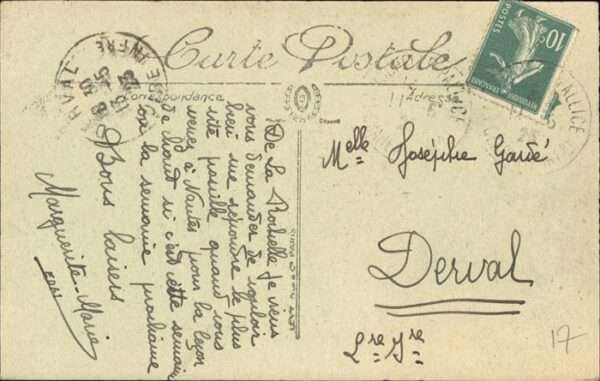 Carte Postale
Correspondance
Adresse
10c
POSTES
De La Rochelle je viens
vous demander de vouloir
bien me répondre le plus
vite possible quand vous
venez à Nantes pour la leçon
de chant si c'est cette semaine
ou la semaine prochaine
Bons baisers
Marguerite-Marie
Melle Josèphe Gardé
Derval
Lre Ire
17